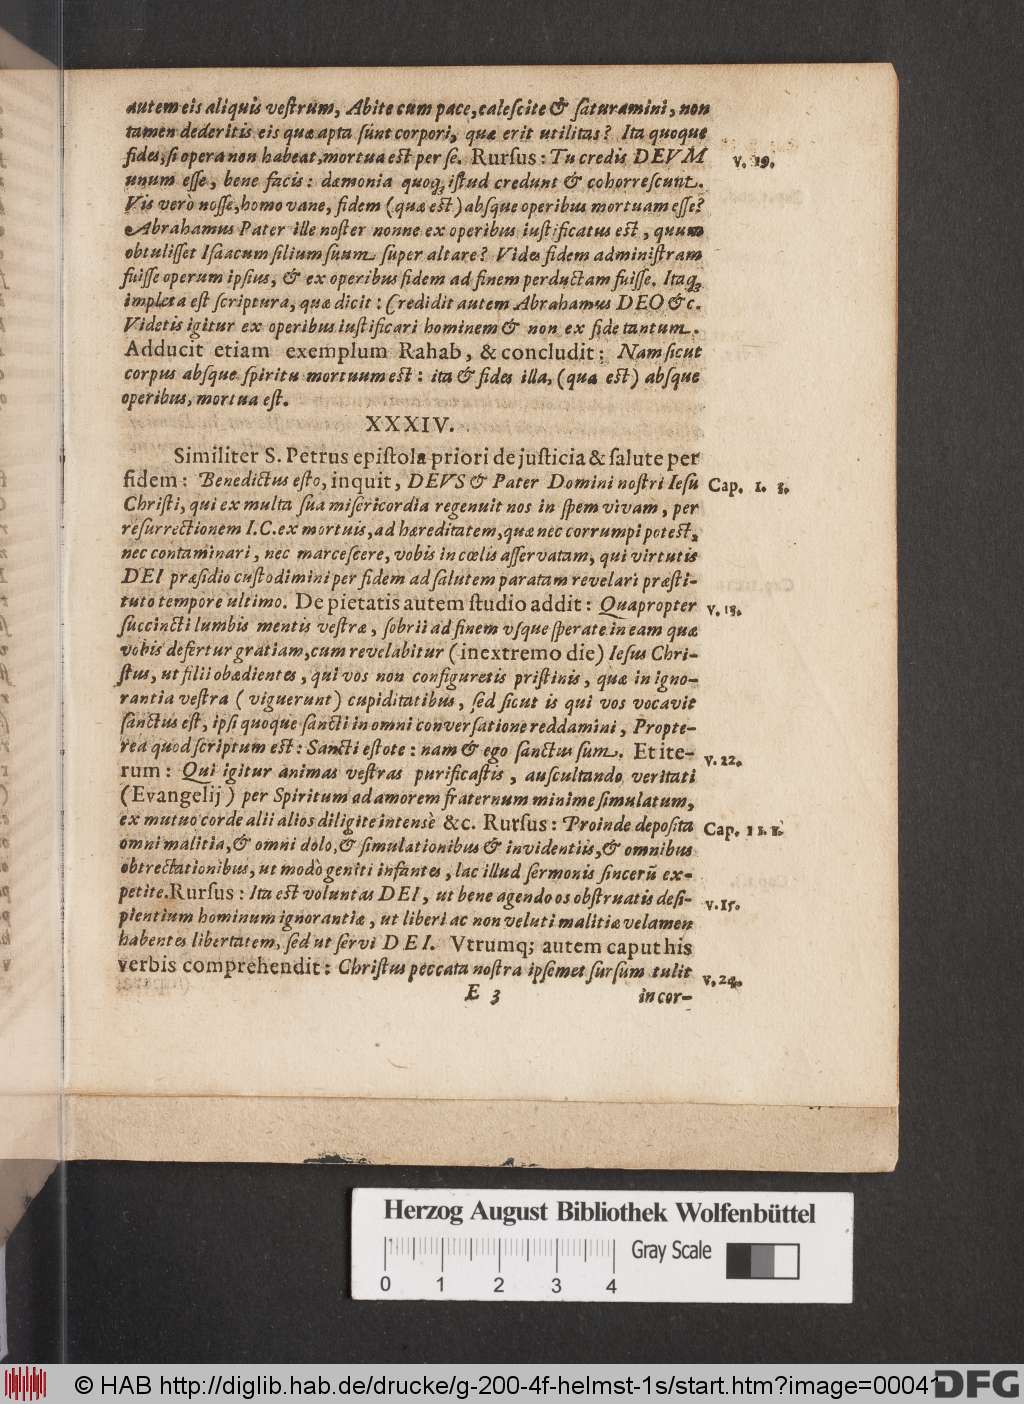 autem eis aliquis veſtrum, Abite cum pace, caleſcite & ſaturamini, non
tamen dederitis eis quæ apta ſunt corpori, quæ erit utilitas? Ita quoque
fides, ſi opera non habeat, mortua eſt per ſe. Rurſus: Tu credis DEVM
v. 19.
unum eſſe, bene facis: dæmonia quoq; iſtud credunt & cohorreſcunt.
Vis verò noſſe, homo vane, fidem (quæ eſt) abſque operibus mortuam eſſe?
Abrahamus Pater ille noſter nonne ex operibus iuſtificatus eſt, quum
obtuliſſet Iſaacum filium ſuum ſuper altare? Vides fidem adminiſtram
fuiſſe operum ipſius, & ex operibus fidem ad finem perductam fuiſſe. Itaq;
impleta eſt ſcriptura, quæ dicit: Credidit autem Abrahamus DEO &c.
Videtis igitur ex operibus iuſtificari hominem & non ex fide tantum.
Adducit etiam exemplum Rahab, & concludit: Nam ſicut
corpus abſque ſpiritu mortuum eſt: ita & fides illa, (quæ eſt) abſque
operibus, mortua eſt.
XXXIV.
Similiter S. Petrus epiſtola priori de juſticia & ſalute per
fidem: Benedictus eſto, inquit, DEVS & Pater Domini noſtri Ieſu
Cap. 1. 3.
Chriſti, qui ex multa ſua miſericordia regenuit nos in ſpem vivam, per
reſurrectionem I. C. ex mortuis, ad hæreditatem, quæ nec corrumpi poteſt,
nec contaminari, nec marceſcere, vobis in cœlis aſſervatam, qui virtutis
DEI præſidio cuſtodimini per fidem ad ſalutem paratam revelari præſti-
tuto tempore ultimo. De pietatis autem ſtudio addit: Quapropter
v. 13.
ſuccincti lumbis mentis veſtræ, ſobrii ad finem vſque ſperate in eam quæ
vobis defertur gratiam, cum revelabitur (in extremo die) Ieſus Chri-
ſtus, ut filii obædientes, qui vos non configuretis priſtinis, quæ in igno-
rantia veſtra (viguerunt) cupiditatibus, ſed ſicut is qui vos vocavit
ſanctus eſt, ipſi quoque ſancti in omni converſatione reddamini, Propte-
rea quod ſcriptum eſt: Sancti eſtote: nam & ego ſanctus ſum. Et ite-
v. 22.
rum: Qui igitur animas veſtras purificaſtis, auſcultando veritati
(Evangelij) per Spiritum ad amorem fraternum minime ſimulatum,
ex mutuo corde alii alios diligite intensè &c. Rurſus: Proinde depoſita
Cap. 11. 1.
omni malitia, & omni dolo, & ſimulationibus & invidentiis, & omnibus
obtrectationibus, ut modò geniti infantes, lac illud ſermonis ſincerū ex-
petite. Rurſus: Ita eſt voluntas DEI, ut bene agendo os obſtruatis deſi-
v. 15.
pientium hominum ignorantiæ, ut liberi ac non veluti malitiæ velamen
habentes libertatem, ſed ut ſervi DEI. Vtrumq; autem caput his
verbis comprehendit: Chriſtus peccata noſtra ipſemet ſurſum tulit
v. 24.
E 3
in cor-
Herzog August Bibliothek Wolfenbüttel
Gray Scale
0 1 2 3 4
© HAB http://diglib.hab.de/drucke/g-200-4f-helmst-1s/start.htm?image=00041
DFG